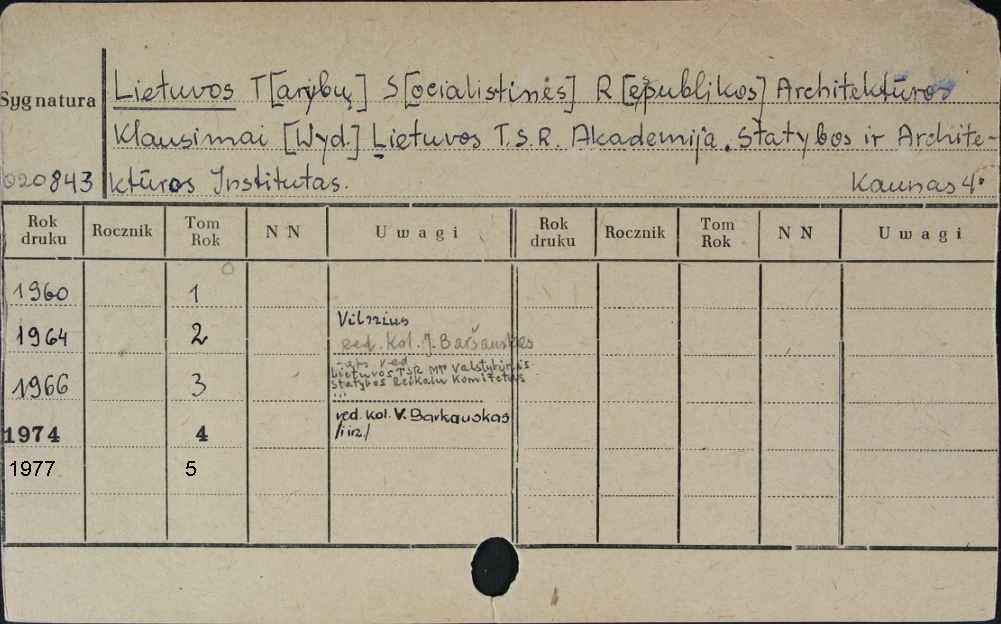 Lietuvos T[arybų] S[ocialistinės] R[epublikos] Architektūros
Sygnatura
Klausimai [Wyd.] Lietuvos T.S.R. Akademija. Statybos ir Archite-
020843 ktūros Institutas. Kaunas 4°
Rok druku Rocznik Tom Rok N N Uwagi Rok druku Rocznik Tom Rok N N Uwagi
1960 1
Vilnius
1964 2 red. kol. J. Baršauskas
red.
Lietuvos TSR MT Valstybinis
1966 3 Statybos Reikalu Komitetas
red. kol. V. Barkauskas
1974 4 /i in/
1977 5